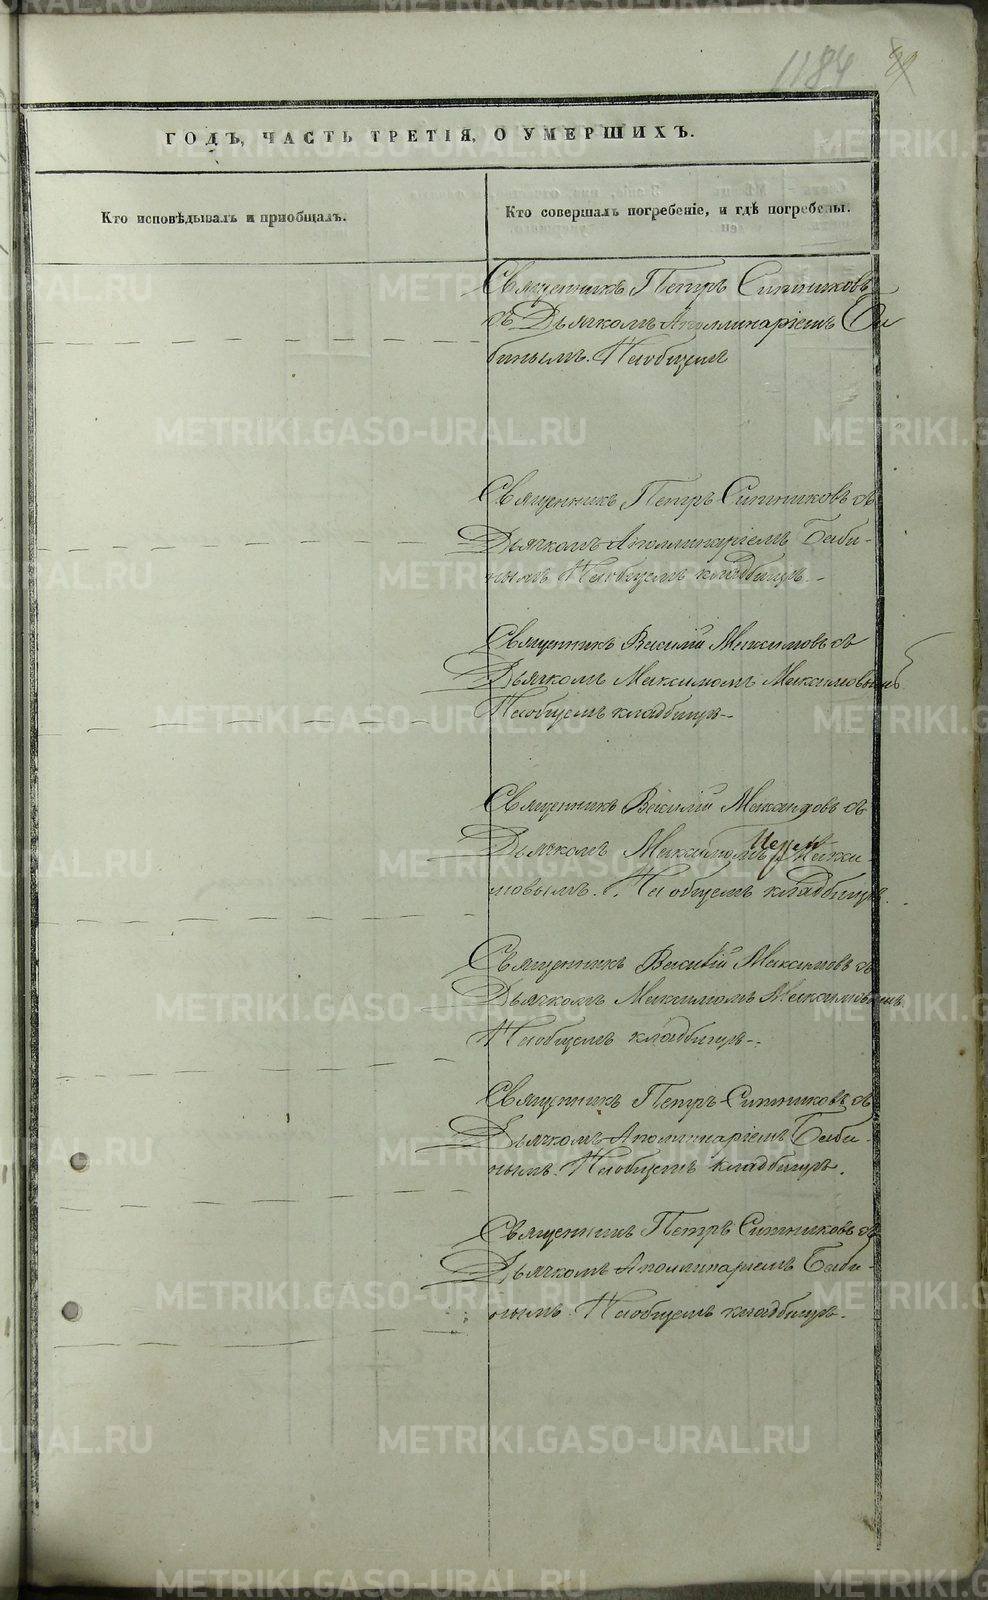 1184
ГОДЪ, ЧАСТЬ ТРЕТІЯ, О УМЕРШИХЪ.
Кто исповѣдывалъ и пріобщалъ.
Кто совершалъ погребеніе, и гдѣ погребены.
Священникъ Петръ Ситниковъ
съ Дьячкомъ Аполлинаріемъ Ба
бинымъ. Наобщемъ
Священникъ Петръ Ситниковъ съ
Дьячкомъ Аполлинаріемъ Баби-
нымъ Наобщемъ кладбищѣ.-
Священникъ Василій Максимовъ съ
Дьячкомъ Максимомъ Максимовымъ
Наобщемъ кладбищѣ--
Священникъ Василій Максимовъ съ
Дьячкомъ Максимомъ Макси-
мовымъ. На общемъ кладбищѣ.
Священникъ Василій Максимовъ съ
Дьячкомъ Максимомъ Максимовымъ
Наобщемъ кладбищѣ-.
Священникъ Петръ Ситниковъ съ
Дьячкомъ Аполлинаріемъ Баби-
нымъ. Наобщемъ кладбищѣ.
Священникъ Петръ Ситниковъ съ
Дьячкомъ Аполлинаріемъ Баби-
нымъ. Наобщемъ кладбищѣ.
METRIKI.GASO-URAL.RU